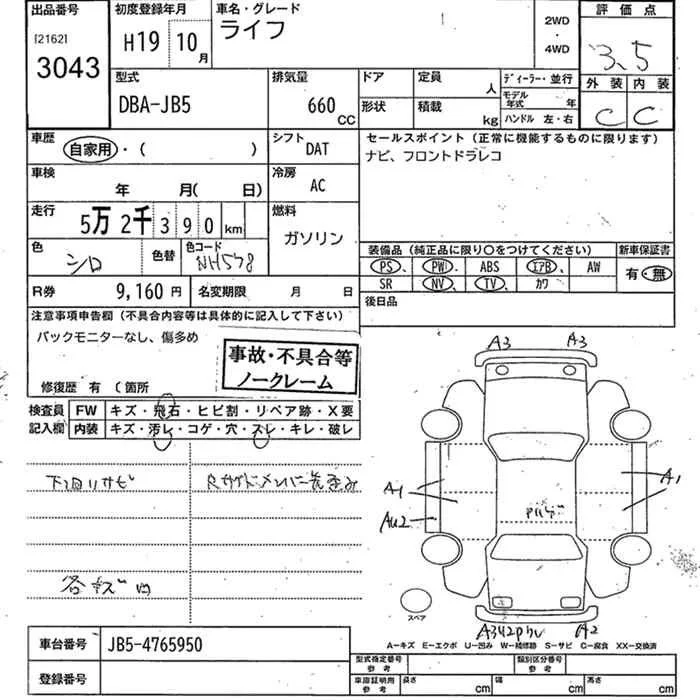 出品番号
[2162]
3043
初度登録年月
H19 10月
車名・グレード
ライフ
2WD
・
4WD
評価点
3.5
外装 内装
C C
型式
DBA-JB5
排気量
660 CC
ドア
定員
人
形状
積載
kg
ディーラー・並行
モデル年式 年
ハンドル 左・右
車歴
自家用・( )
シフト
DAT
セールスポイント(正常に機能するものに限ります)
ナビ、フロントドラレコ
車検
年 月( 日)
冷房
AC
走行
5万 2千 3 9 0 km
燃料
ガソリン
色
シロ
色替
色コード
NH578
装備品(純正品に限り〇をつけてください)
新車保証書
PS、 PW、 ABS エアB、 AW
SR NV、 TV、 カワ
有・無
R券
9,160 円
名変期限 月 日
後日品
注意事項申告欄(不具合内容等は具体的に記入して下さい)
バックモニターなし、傷多め
事故・不具合等
ノークレーム
修復歴 有 〔 箇所
検査員
記入欄
FW キズ・飛石・ヒビ割・リペア跡・X要
内装 キズ・汚レ・コゲ・穴・スレ・キレ・破レ
下回りサビ
各キズ凹
A3 A3
A1
AU2
A1
A2
スペア
A−キズ E−エクボ U−凹み W−補修跡 S−サビ C−腐食 XX−交換済
車台番号
JB5-4765950
登録番号
型式指定番号
参考
類別区分番号
参考
車庫証明用
参考
長さ cm
幅 cm
高さ cm